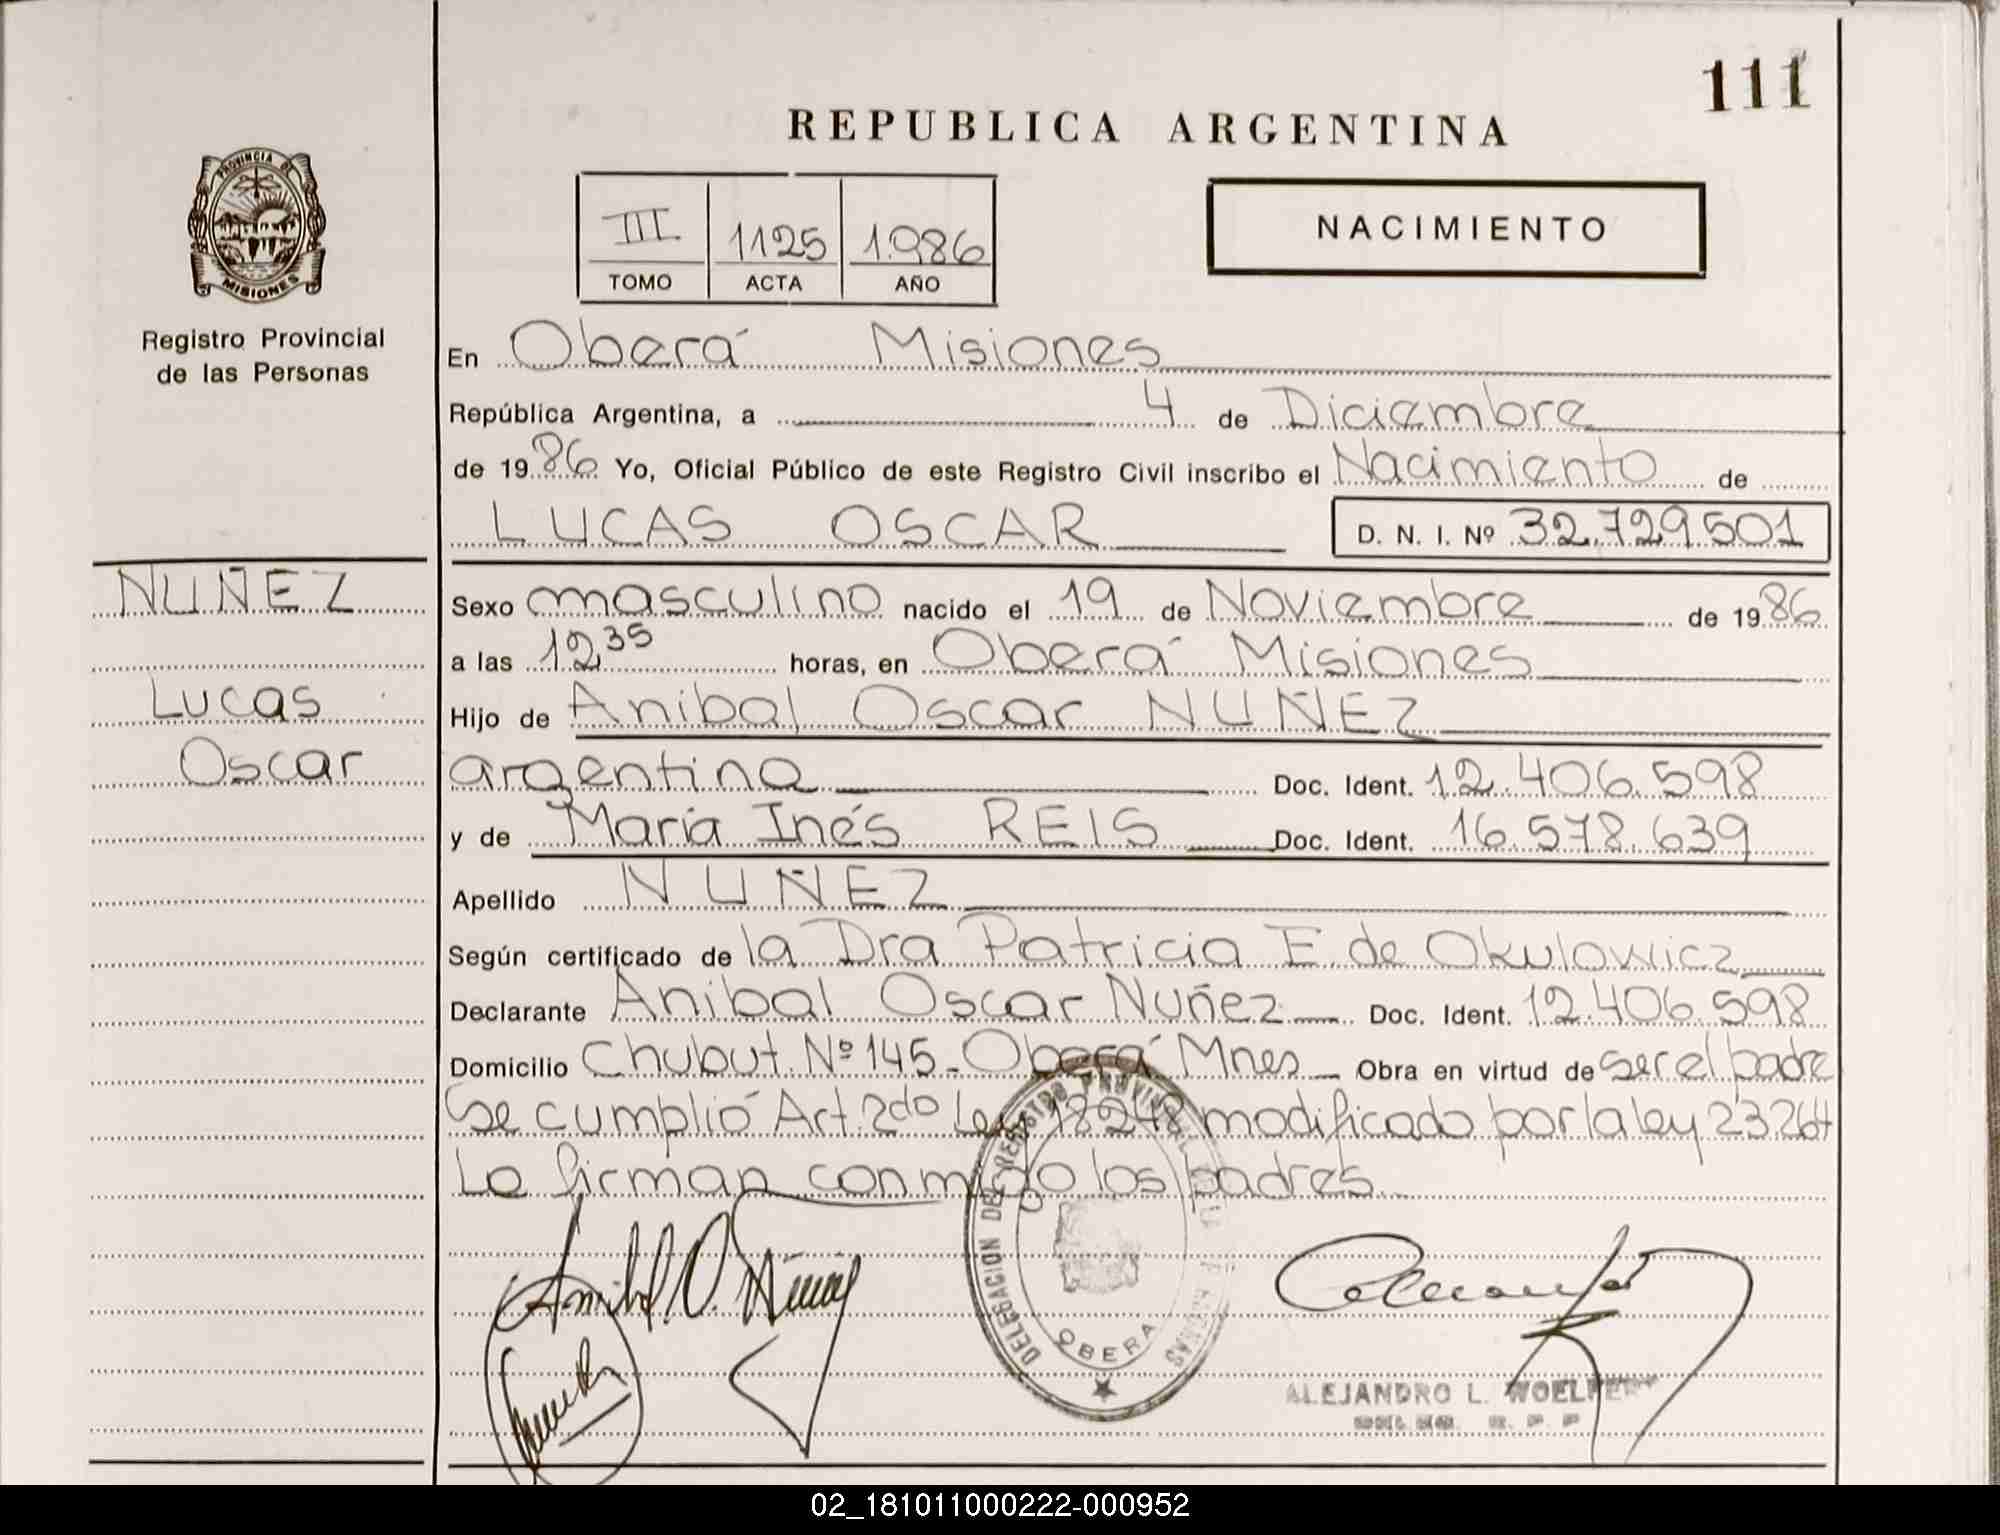 111
REPUBLICA ARGENTINA
PROVINCIA DE
MISIONES
Registro Provincial
de las Personas
III 1125 1.986
TOMO ACTA AÑO
NACIMIENTO
En Oberá Misiones
República Argentina, a 4 de Diciembre
de 1986 Yo, Oficial Público de este Registro Civil inscribo el Nacimiento de
LUCAS OSCAR D. N. I. Nº 32.729.501
NUÑEZ
Lucas
Oscar
Sexo masculino nacido el 19 de Noviembre de 1986
a las 12,35 horas, en Oberá Misiones
Hijo de Anibal Oscar NUÑEZ
argentina Doc. Ident. 12.406.598
y de María Inés REIS Doc. Ident. 16.578.639
Apellido NUÑEZ
Según certificado de la Dra Patricia E. de Okulowicz
Declarante Anibal Oscar Nuñez Doc. Ident. 12.406.598
Domicilio Chubut Nº 145- Oberá Mnes Obra en virtud de ser el padre
Se cumplió Art. 2do Ley 18248 modificado por la ley 23264
Lo firman conmigo los padres
Anibal O. Núñez
DELEGACION DEL REGISTRO PROVINCIAL DE LAS PERSONAS
OBERA
ALEJANDRO L.
02_181011000222-000952